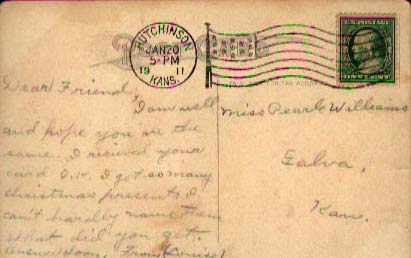 HUTCHINSON
JAN 20
5-PM
1911
KANS.
U.S. POSTAGE
Dear Friend,
I am well
and hope you are the
same. I recieved your
card O.K. I got so many
Christmas presents I
can't hardly name them
what did you get.
Answer soon, From
Miss Pearl Williams
Galva,
Kan.